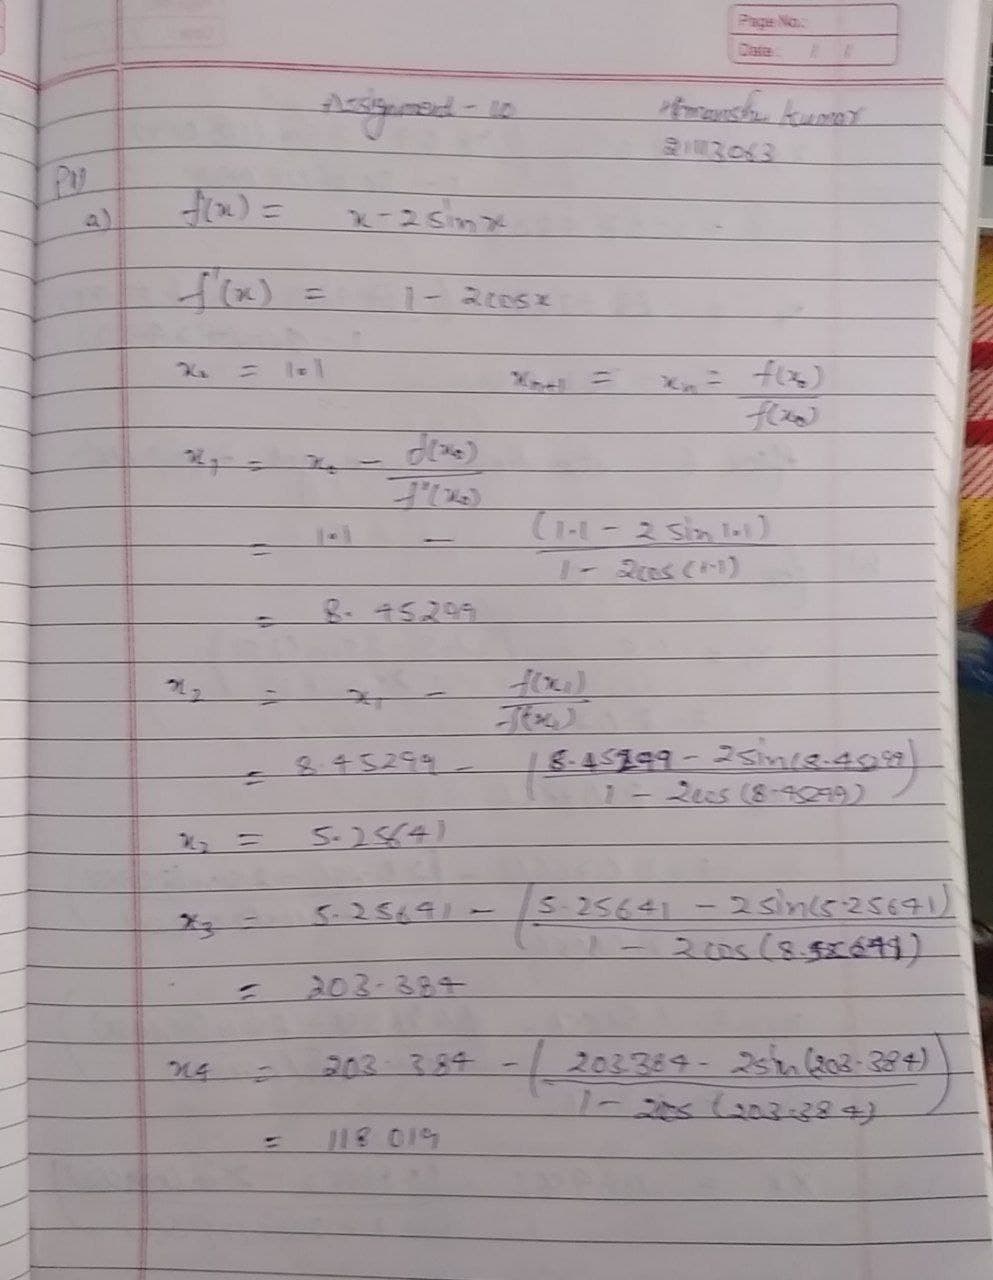 Page No.:
Date: / /
Assignment - 10 Himanshu Kumar
21113063
P1)
a) f(x) = x - 2 sin x
f'(x) = 1 - 2cosx
x₀ = 1.1 xₙ₊₁ = xₙ = f(x₀) / f(x₀)
x₁ = x₀ - f(x₀) / f'(x₀)
= 1.1 - (1.1 - 2 sin 1.1) / 1 - 2cos(1.1)
= 8.45299
x₂ = x₁ - f(x₁) / f(x₁)
= 8.45299 - (8.45299 - 2 sin(8.45299) / 1 - 2cos(8.45299))
x₂ = 5.25641
x₃ = 5.25641 - (5.25641 - 2 sin(5.25641) / 1 - 2cos
= 203.384
x₄ = 203.384 - (203.384 - 2sin(203.384) / 1 - 2cos(203.384))
= 118.019